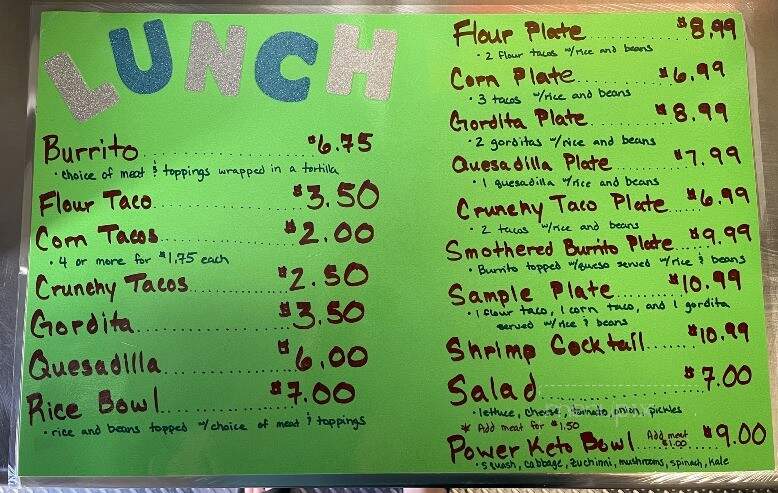 LUNCH
Burrito $6.75
• choice of meat & toppings wrapped in a tortilla
Flour Taco $3.50
Corn Tacos $2.00
• 4 or more for $1.75 each
Crunchy Tacos $2.50
Gordita $3.50
Quesadilla $6.00
Rice Bowl $7.00
• rice and beans topped w/choice of meat & toppings
Flour Plate $8.99
• 2 flour tacos w/rice and beans
Corn Plate $6.99
• 3 tacos w/rice and beans
Gordita Plate $8.99
• 2 gorditas w/rice and beans
Quesadilla Plate $7.99
• 1 quesadilla w/rice and beans
Crunchy Taco Plate $6.99
• 2 tacos w/rice and beans
Smothered Burrito Plate $9.99
• Burrito topped w/queso served w/rice & beans
Sample Plate $10.99
• 1 flour taco, 1 corn taco, and 1 gordita
served w/rice & beans
Shrimp Cocktail $10.99
Salad $7.00
• lettuce, cheese, tomato, onion, pickles
* Add meat for $1.50
Power Keto Bowl Add meat $1.00 $9.00
• squash, cabbage, zuchinni, mushrooms, spinach, kale